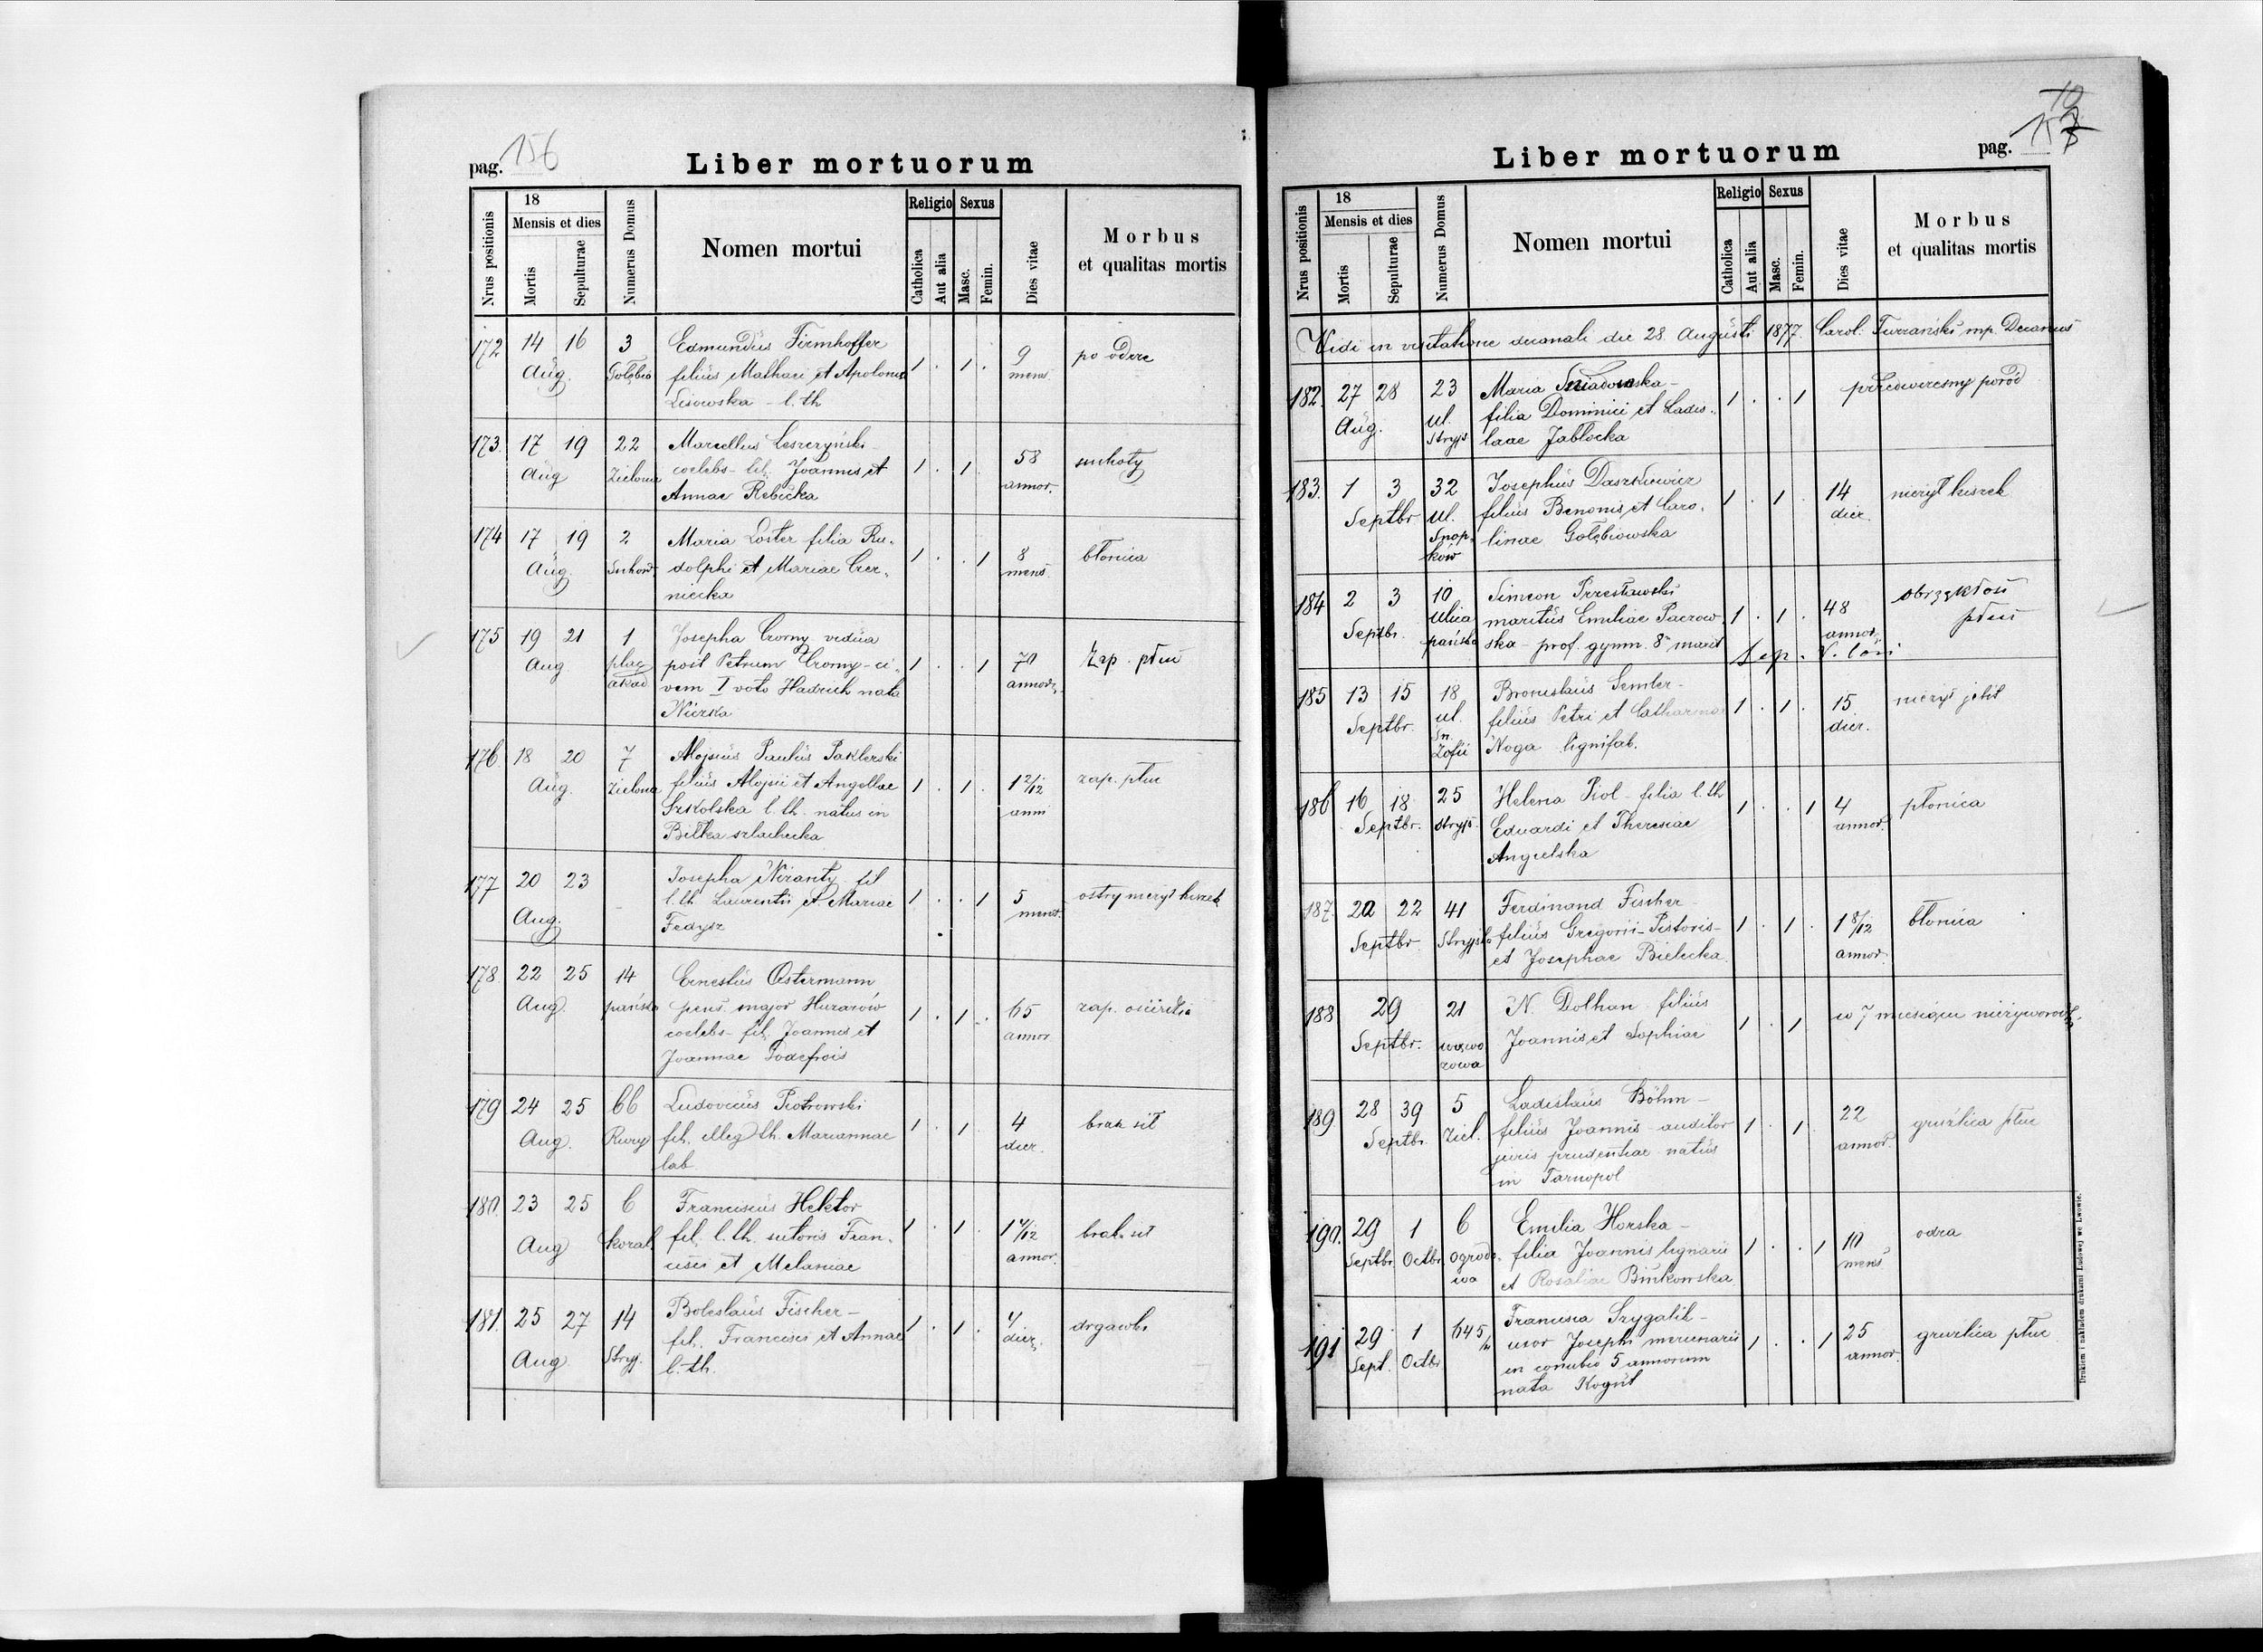 pag. 156
Liber mortuorum
Nrus positionis
18
Mensis et dies
Mortis
Sepulturae
Numerus Domus
Nomen mortui
Religio
Catholica
Aut alia
Sexus
Masc.
Femin.
Dies vitae
Morbus
et qualitas mortis
172 14 16 3 Edmundus Firmhoffer 1 . 1 . 9 po odrze
Aug. Gołębia filius Mathaei et Apolonia mens.
Lisowska - l. th
173. 17 19 22 Marcellus Leszczyński 1 . 1 58 suchoty
Aug Zielona coelebs - fil. Joannis et annor.
Annae Rębicka
174 17 19 2 Maria Loster filia Ru- 1 . . 1 8 błonica
Aug. dolphi et Mariae Czer- mens.
niecka
175 19 21 1 Josepha Czorny vidua 1 . . 1 70 Zap. płuc
Aug plac akad post Petrum Czorny - ci- annor.
vem I voto Hadrich nata
176. 18 20 7 Alojsius Paulus Paklerski 1 . 1 . zap. płuc
Aug. Zielona filius Alojsii et Angellae 1 2/12
Szkolska l. th. natus in anni
Biłka szlachecka
177 20 23 Josepha fil 1 . . 1 5 ostry nieżyt kiszek
Aug. l. th. Laurentii et Mariae mens.
Fedysz
178. 22 25 14 Ernestus Ostermann 1 . 1 . 65
Aug. pańska pens. major Huzarów annor
coelebs - fil. Joannis et
Joannae Godefrois
179 24 25 66 Ludovicus Piotrowski 1 . 1 4 brak sił
Aug. fil. illeg th. Mariannae dier.
lab
180. 23 25 6 Franciscus Hektor 1 . 1 . brak sił
Aug koral. fil. l. th. sutoris Fran- annor.
cisci et Melaniae
181. 25 27 14 Boleslaus Fischer - 1 . 1 . 4 drgawki
Aug Stryj. fil. Francisci et Annae dier.
l. th.
pag.
Liber mortuorum
Nrus positionis
18
Mensis et dies
Mortis
Sepulturae
Numerus Domus
Nomen mortui
Religio
Catholica
Aut alia
Sexus
Masc.
Femin.
Dies vitae
Morbus
et qualitas mortis
Vidi in visitatione decanali die 28. Augusti 1877. Carol. Turzański mp. Decanus
182. 27 28 23 Maria 1 . . 1 przedwczesny poród
Aug. ul. Stryjs filia Dominici et Ladis-
laae Jabłocka
183. 1 3 32 Josephus Daszkiewicz 1 . 1 . 14 nieżyt kiszek
Septbr ul. filius Benonis et Caro- dier.
Snop- linae Gołębiowska
ków
184 2 3 10 Simeon Przestawski 1 . 1 . 48
Septbr. ulica maritus Emiliae Paczow- annor. płuc
pańska ska - prof. gymn.
185 13 15 18 Bronislaus Semler - 1 . 1 . 15 nieżyt jelit
Septbr. ul. filius Petri et Catharina dier.
Św. Zofii Noga lignifab.
186 16 18 25 Helena Piol - filia l. th 1 . . 1 4 płonica
Septbr. Stryjs. Eduardi et Theresiae annor.
Angielska
187. 20 22 41 Ferdinand Fischer - 1 . 1 . 1 8/12 błonica
Septbr. Stryjska filius Gregorii - Pistoris - annor.
et Josephae Bielecka
188 29 21 N. Dolhan filius 1 . 1 w 7 miesiącu nieżywo
Septbr. wąwo Joannis et Sophiae
zowa
189 28 39 5 Ladislaus Böhm - 1 . 1 . 22 gruźlica płuc
Septbr. Ziel. filius Joannis - auditor annor.
juris prudentiae natus
in Tarnopol
190. 29 1 6 Emilia Horska - 1 . . 1 10 odra
Septbr. Octbr. Ogrodo- filia Joannis lignarii mens
wa et Rosaliae Binkowska
191 29 1 645 Francisca Szygalik - 1 . . 1 25 gruźlica płuc
Sept. Octbr. uxor Josephi mercenarii annor.
in conubio 5 annorum
nata Kogut
Drukiem i nakładem drukarni Ludowej we Lwowie.